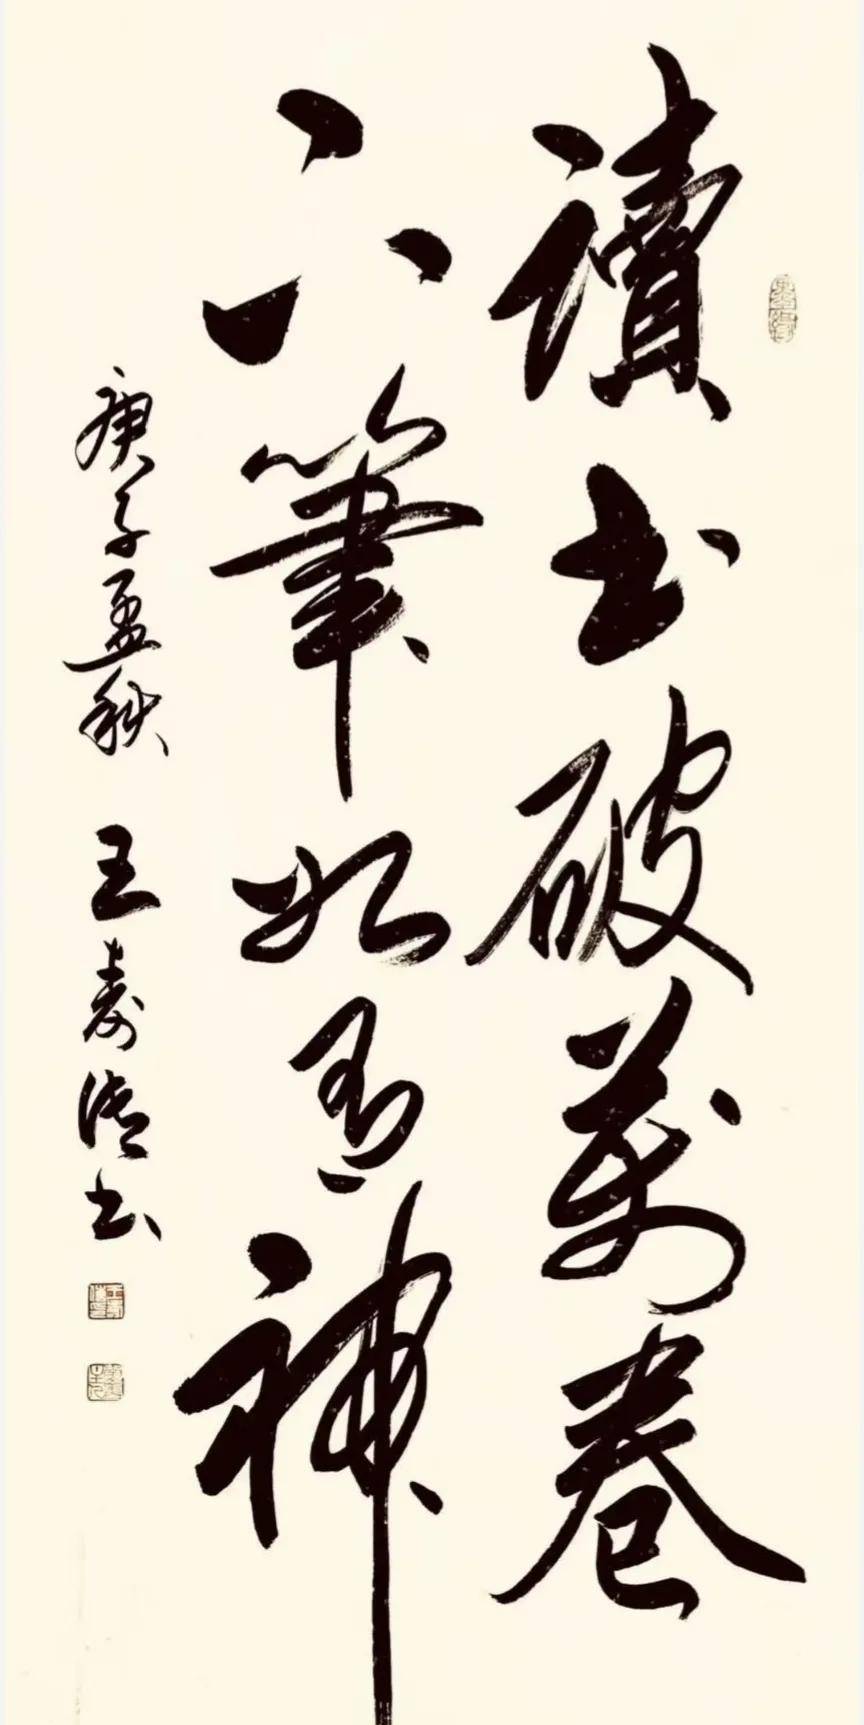 讀書破萬卷
下筆如有神
庚子孟秋 王壽 書